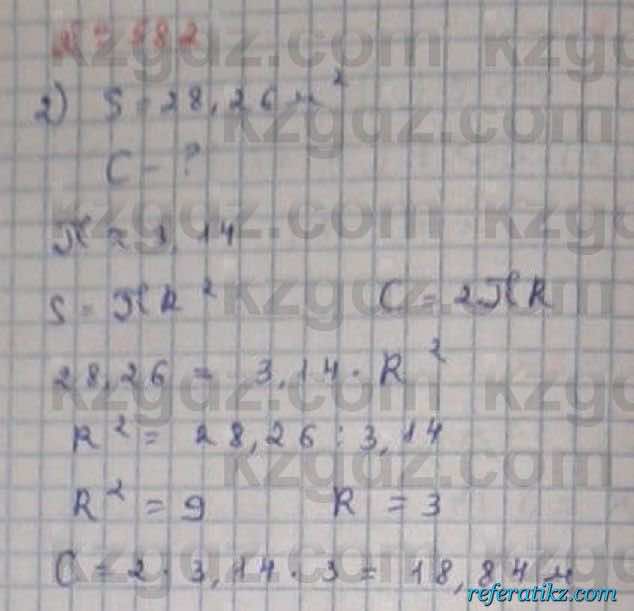 2) S = 28,26 м²
C - ?
π ≈ 3,14
S = πR² C = 2πR
28,26 = 3,14 · R²
R² = 28,26 : 3,14
R² = 9 R = 3
C = 2 · 3,14 · 3 = 18,84 м
kzgdz.com
referatikz.com